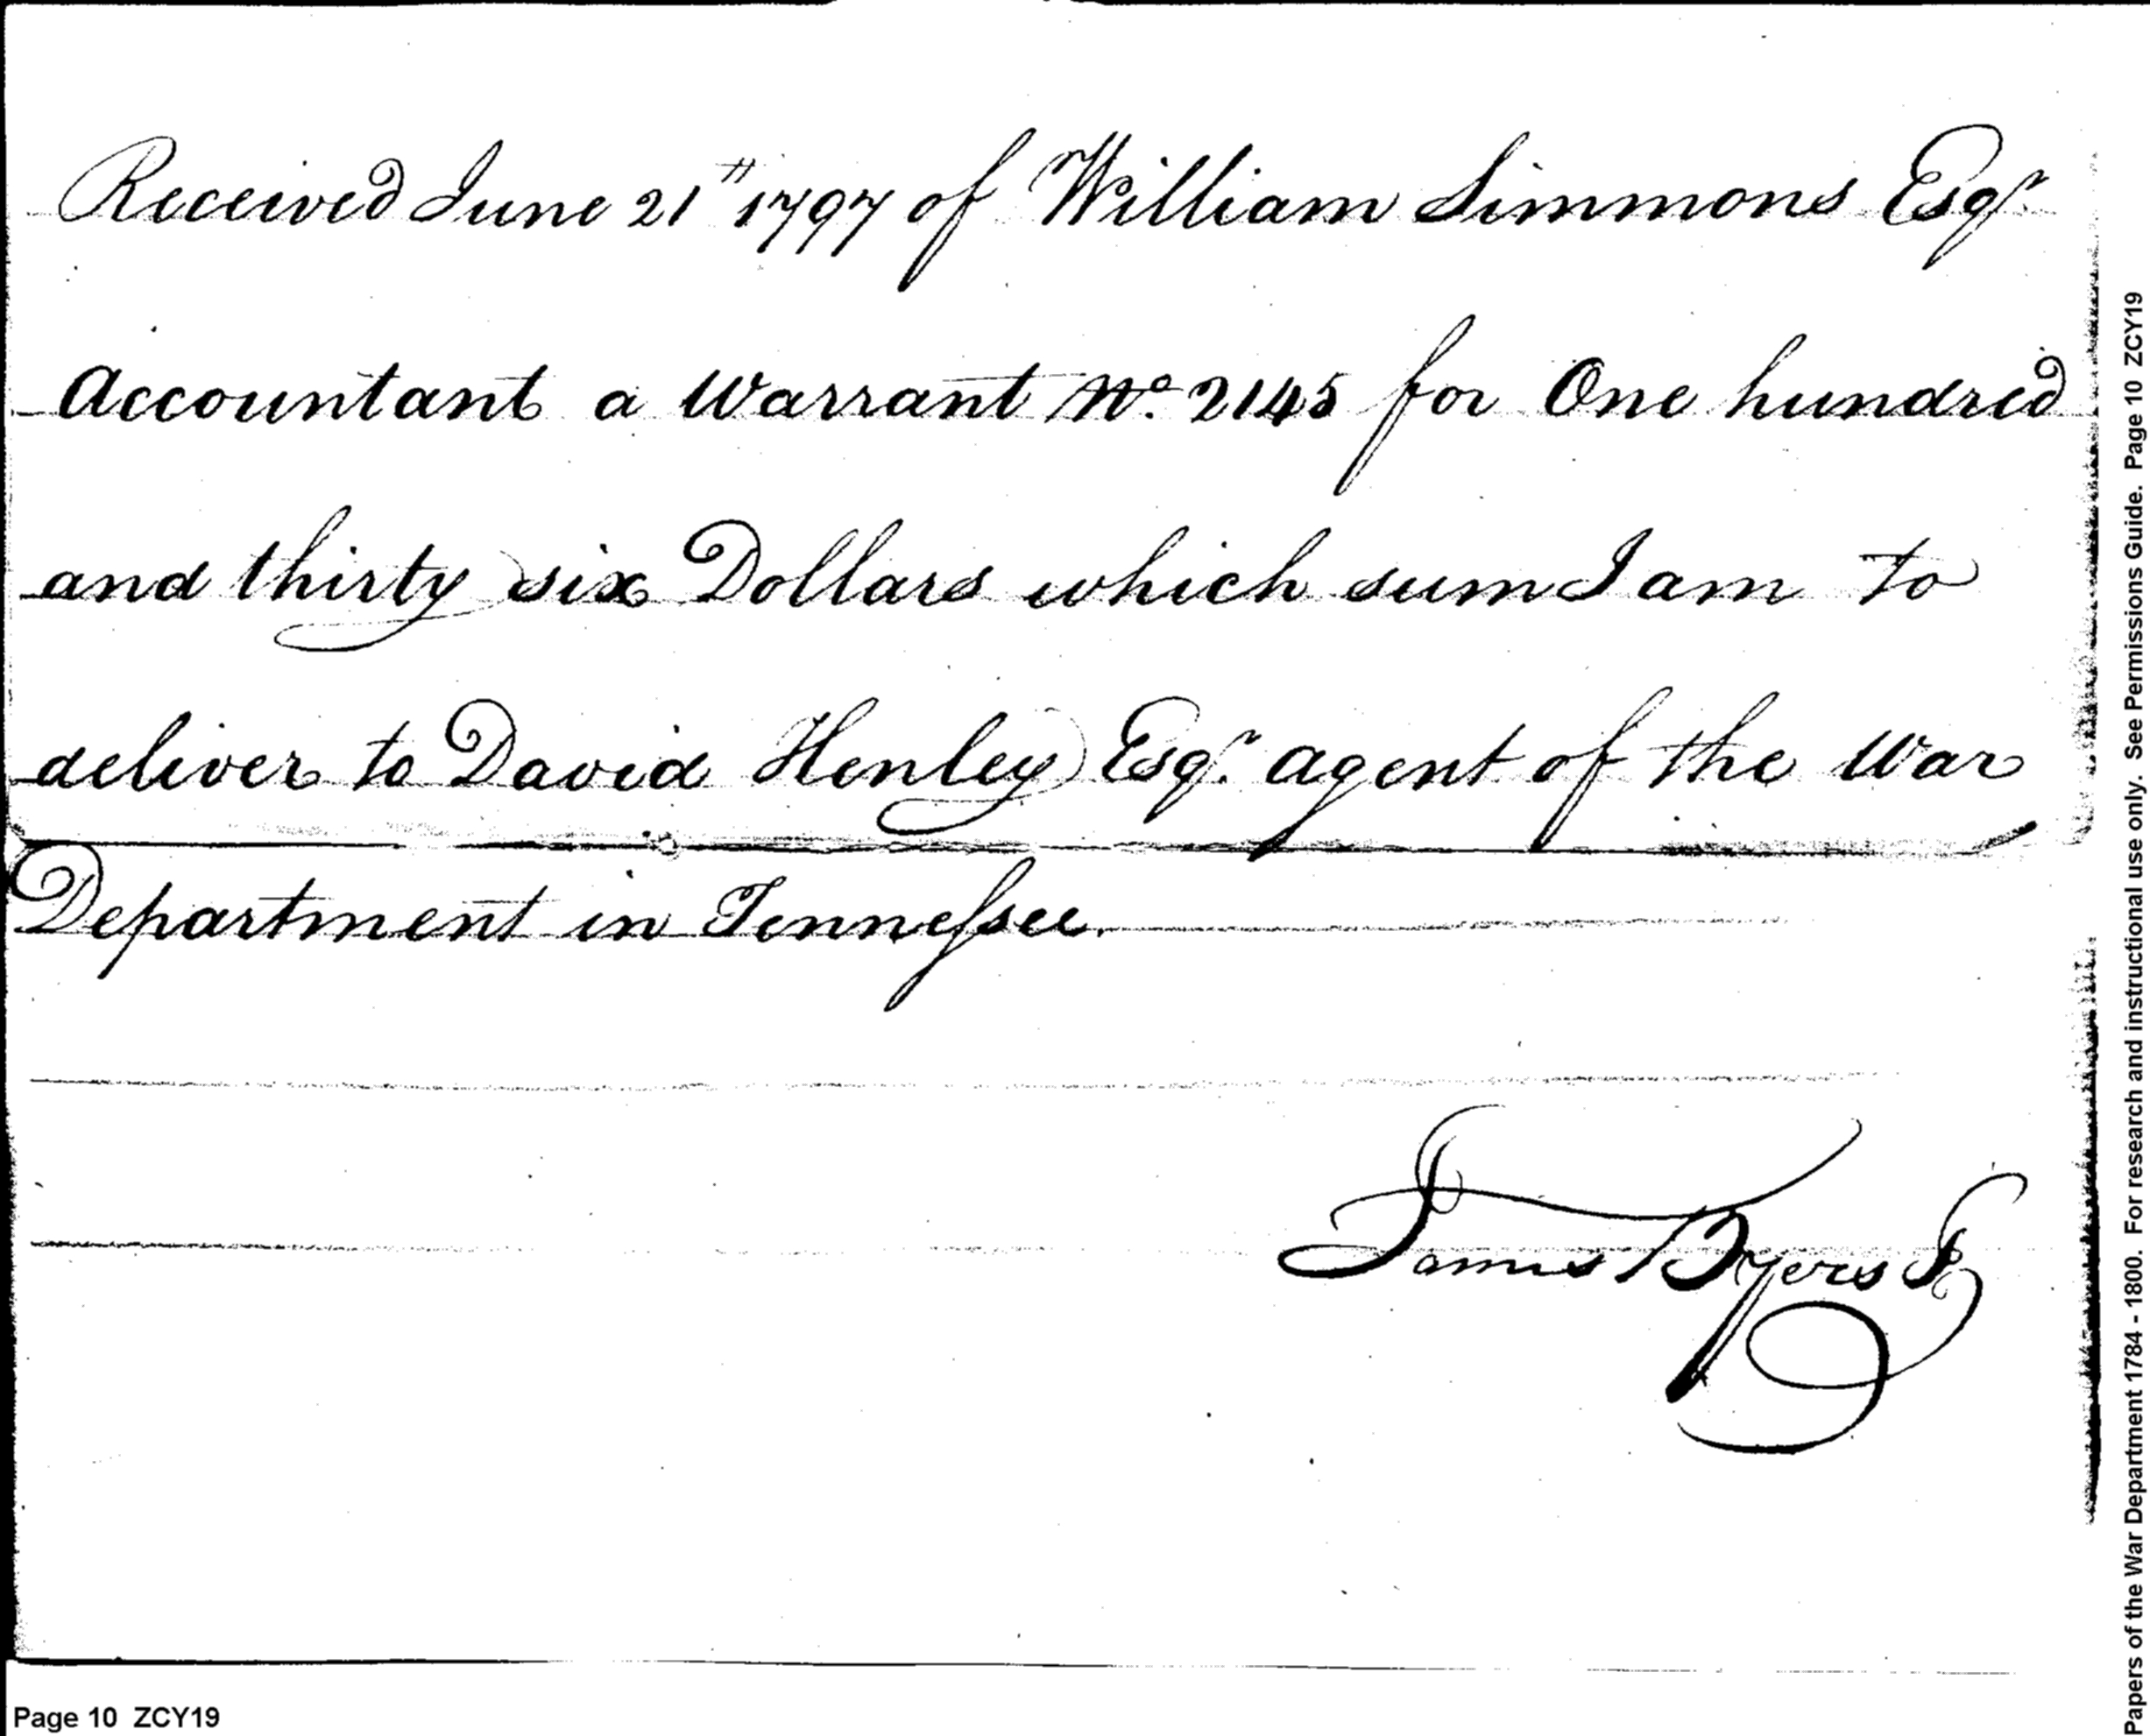 Received June 21st 1797 of William Simmons Esqr.
Accountant a Warrant No. 2145 for One hundred
and thirty six Dollars which sum I am to
deliver to David Henley Esqr. agent of the War
Department in Tennessee.
James Byers
Page 10 ZCY19
Papers of the War Department 1784 - 1800. For research and instructional use only. See Permissions Guide. Page 10 ZCY19